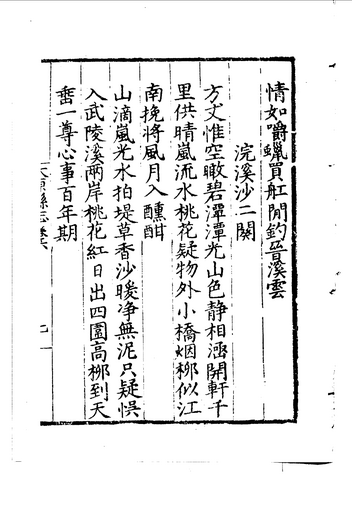 情如嚼蠟買舡閒釣晉溪雲
浣溪沙二闋
方丈惟空瞰碧潭潭光山色静相涵開軒千
里供晴嵐流水桃花疑物外小橋烟栁似江
南挽將風月入醺酣
山滴嵐光水拍堤草香沙暖净無泥只疑悞
入武陵溪兩岸桃花紅日出四圍高栁到天
垂一尊心事百年期